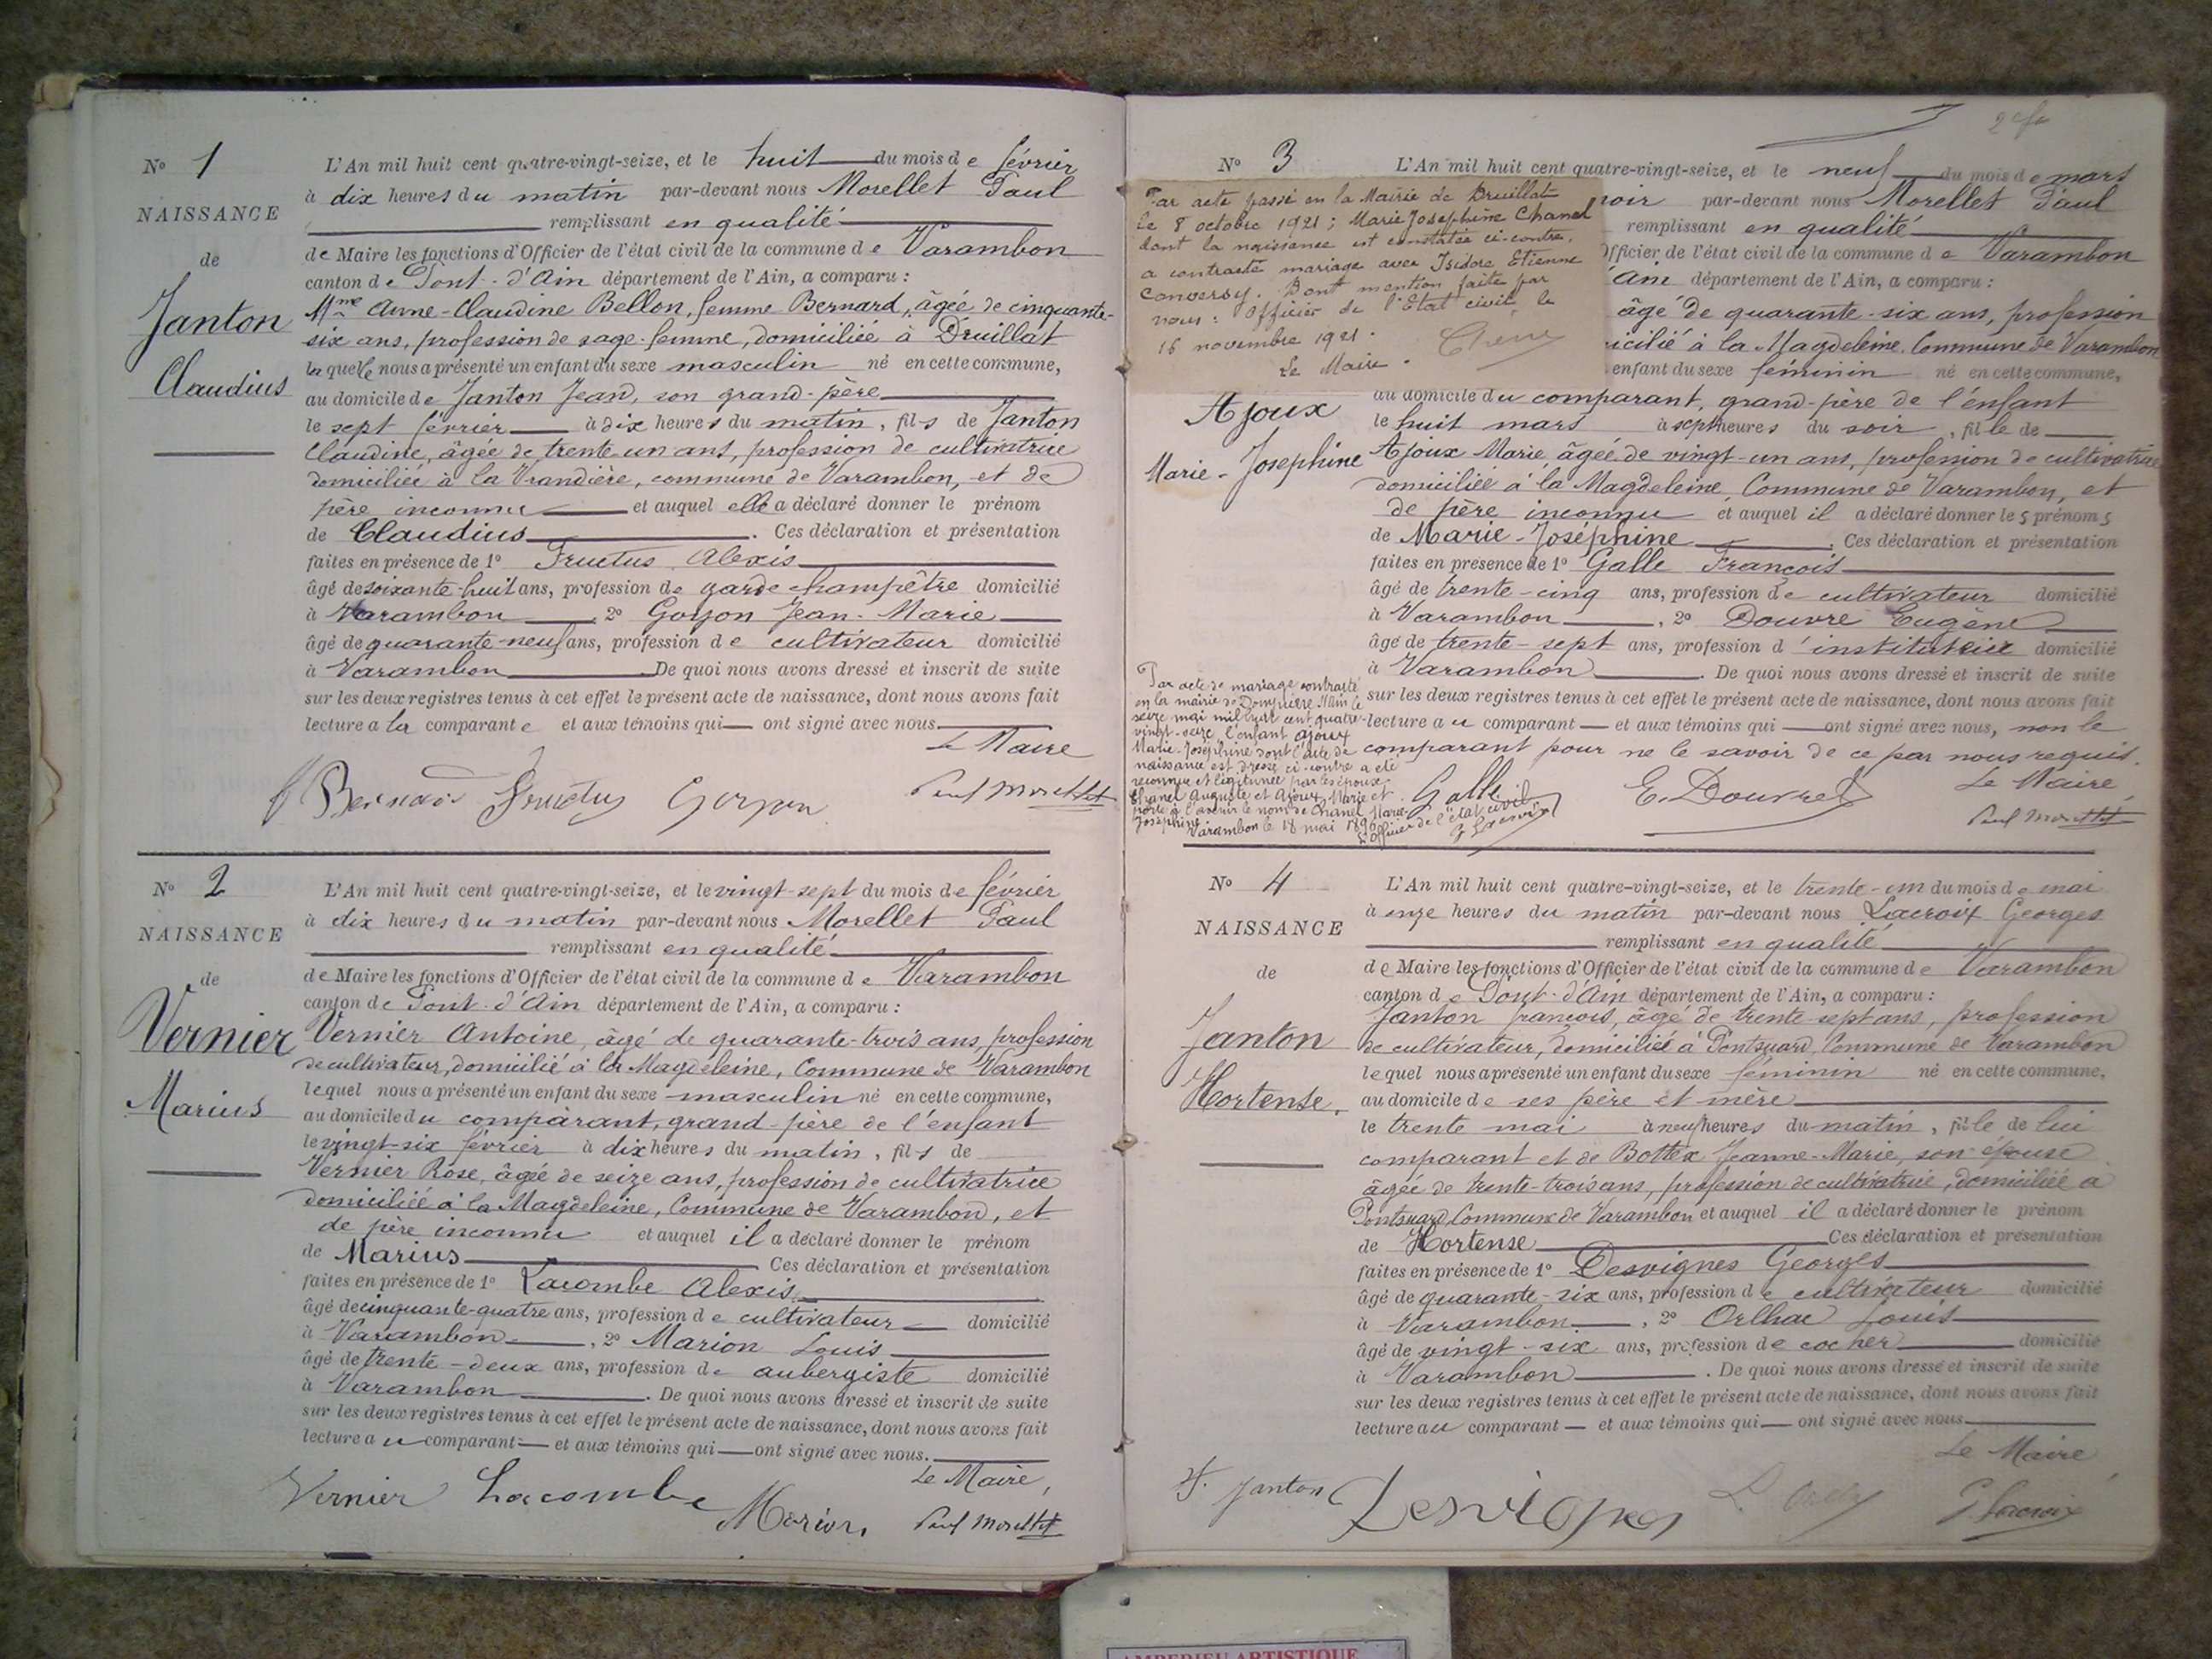 N° 1
NAISSANCE
de
Janton
Claudius
L'An mil huit cent quatre-vingt-seize, et le huit du mois de février
à dix heures du matin par-devant nous Morellet Paul
remplissant en qualité
de Maire les fonctions d'Officier de l'état civil de la commune de Varambon
canton de Pont-d'Ain département de l'Ain, a comparu :
Mme Anne-Claudine Bellon, femme Bernard, âgée de cinquante-
six ans, profession de sage-femme, domiciliée à Druillat
laquelle nous a présenté un enfant du sexe masculin né en cette commune,
au domicile de Janton Jean, son grand-père
le sept février à dix heures du matin, fils de Janton
Claudine, âgée de trente un ans, profession de cultivatrice
domiciliée à la Vrandière, commune de Varambon, et de
père inconnu et auquel elle a déclaré donner le prénom
de Claudius. Ces déclaration et présentation
faites en présence de 1° Fructus Alexis
âgé de soixante-huit ans, profession de garde champêtre domicilié
à Varambon, 2° Goyon Jean-Marie
âgé de quarante-neuf ans, profession de cultivateur domicilié
à Varambon De quoi nous avons dressé et inscrit de suite
sur les deux registres tenus à cet effet le présent acte de naissance, dont nous avons fait
lecture a la comparante et aux témoins qui ont signé avec nous
Le Maire
f Bernard Fructus Goyon Paul Morellet
N° 2
NAISSANCE
de
Vernier
Marius
L'An mil huit cent quatre-vingt-seize, et le vingt-sept du mois de février
à dix heures du matin par-devant nous Morellet Paul
remplissant en qualité
de Maire les fonctions d'Officier de l'état civil de la commune de Varambon
canton de Pont-d'Ain département de l'Ain, a comparu :
Vernier Antoine, âgé de quarante-trois ans, profession
de cultivateur, domicilié à la Magdeleine, Commune de Varambon
lequel nous a présenté un enfant du sexe masculin né en cette commune,
au domicile du comparant, grand-père de l'enfant
le vingt-six février à dix heures du matin, fils de
Vernier Rose, âgée de seize ans, profession de cultivatrice
domiciliée à la Magdeleine, Commune de Varambon, et
de père inconnu et auquel il a déclaré donner le prénom
de Marius Ces déclaration et présentation
faites en présence de 1° Lacombe Alexis
âgé de cinquante-quatre ans, profession de cultivateur domicilié
à Varambon, 2° Marion Louis
âgé de trente-deux ans, profession de aubergiste domicilié
à Varambon. De quoi nous avons dressé et inscrit de suite
sur les deux registres tenus à cet effet le présent acte de naissance, dont nous avons fait
lecture au comparant et aux témoins qui ont signé avec nous.
Le Maire,
Vernier Lacombe Marion Paul Morellet
N° 3
Par acte passé en la Mairie de Druillat
le 8 octobre 1921 ; Marie Josephine Chanel
dont la naissance est constatée ci-contre,
a contracté mariage avec Isidore Etienne
Conversy. Dont mention faite par
nous : Officier de l'Etat civil, le
16 novembre 1921.
Le Maire.
Ajoux
Marie-Josephine
L'An mil huit cent quatre-vingt-seize, et le neuf du mois de mars
soir par-devant nous Morellet Paul
remplissant en qualité
Officier de l'état civil de la commune de Varambon
Ain département de l'Ain, a comparu :
âgé de quarante-six ans, profession
icilié à la Magdeleine, Commune de Varambon
enfant du sexe féminin né en cette commune,
au domicile du comparant, grand-père de l'enfant
le huit mars à sept heures du soir, fille de
Ajoux Marie, âgée de vingt-un ans, profession de cultivatrice
domiciliée à la Magdeleine, Commune de Varambon, et
de père inconnu et auquel il a déclaré donner les prénoms
de Marie-Joséphine. Ces déclaration et présentation
faites en présence de 1° Galle François
âgé de trente-cinq ans, profession de cultivateur domicilié
à Varambon, 2° Douvre Eugène
âgé de trente-sept ans, profession d'instituteur domicilié
à Varambon. De quoi nous avons dressé et inscrit de suite
sur les deux registres tenus à cet effet le présent acte de naissance, dont nous avons fait
lecture au comparant et aux témoins qui ont signé avec nous, non le
comparant pour ne le savoir de ce par nous requis.
Le Maire
Galle E. Douvre Paul Morellet
Par acte de mariage contracté
en la mairie de Dompierre d'Ain le
seize mai mil huit cent quatre-
vingt-seize l'enfant Ajoux
Marie-Joséphine dont l'acte de
naissance est dressé ci-contre a été
reconnue et légitimée par les époux
Chanel Auguste et Ajoux Marie et
porte à l'avenir le nom de Chanel Marie-
Josephine
Varambon le 18 mai 1896
L'Officier de l'état civil
G Lacroix
N° 4
NAISSANCE
de
Janton
Hortense.
L'An mil huit cent quatre-vingt-seize, et le trente-un du mois de mai
à onze heures du matin par-devant nous Lacroix Georges
remplissant en qualité
de Maire les fonctions d'Officier de l'état civil de la commune de Varambon
canton de Pont-d'Ain département de l'Ain, a comparu :
Janton François, âgé de trente-sept ans, profession
de cultivateur, domicilié à Pontsuard, Commune de Varambon
lequel nous a présenté un enfant du sexe féminin né en cette commune,
au domicile de ses père et mère
le trente mai à neuf heures du matin, fille de lui
comparant et de Bottex Jeanne-Marie, son épouse
âgée de trente-trois ans, profession de cultivatrice, domiciliée à
Pontsuard, Commune de Varambon et auquel il a déclaré donner le prénom
de Hortense Ces déclaration et présentation
faites en présence de 1° Desvignes Georges
âgé de quarante-six ans, profession de cultivateur domicilié
à Varambon, 2° Orlhac Louis
âgé de vingt-six ans, profession de cocher domicilié
à Varambon. De quoi nous avons dressé et inscrit de suite
sur les deux registres tenus à cet effet le présent acte de naissance, dont nous avons fait
lecture au comparant et aux témoins qui ont signé avec nous
Le Maire
F. Janton Desvignes G. Lacroix
AMBERIEU ARTISTIQUE